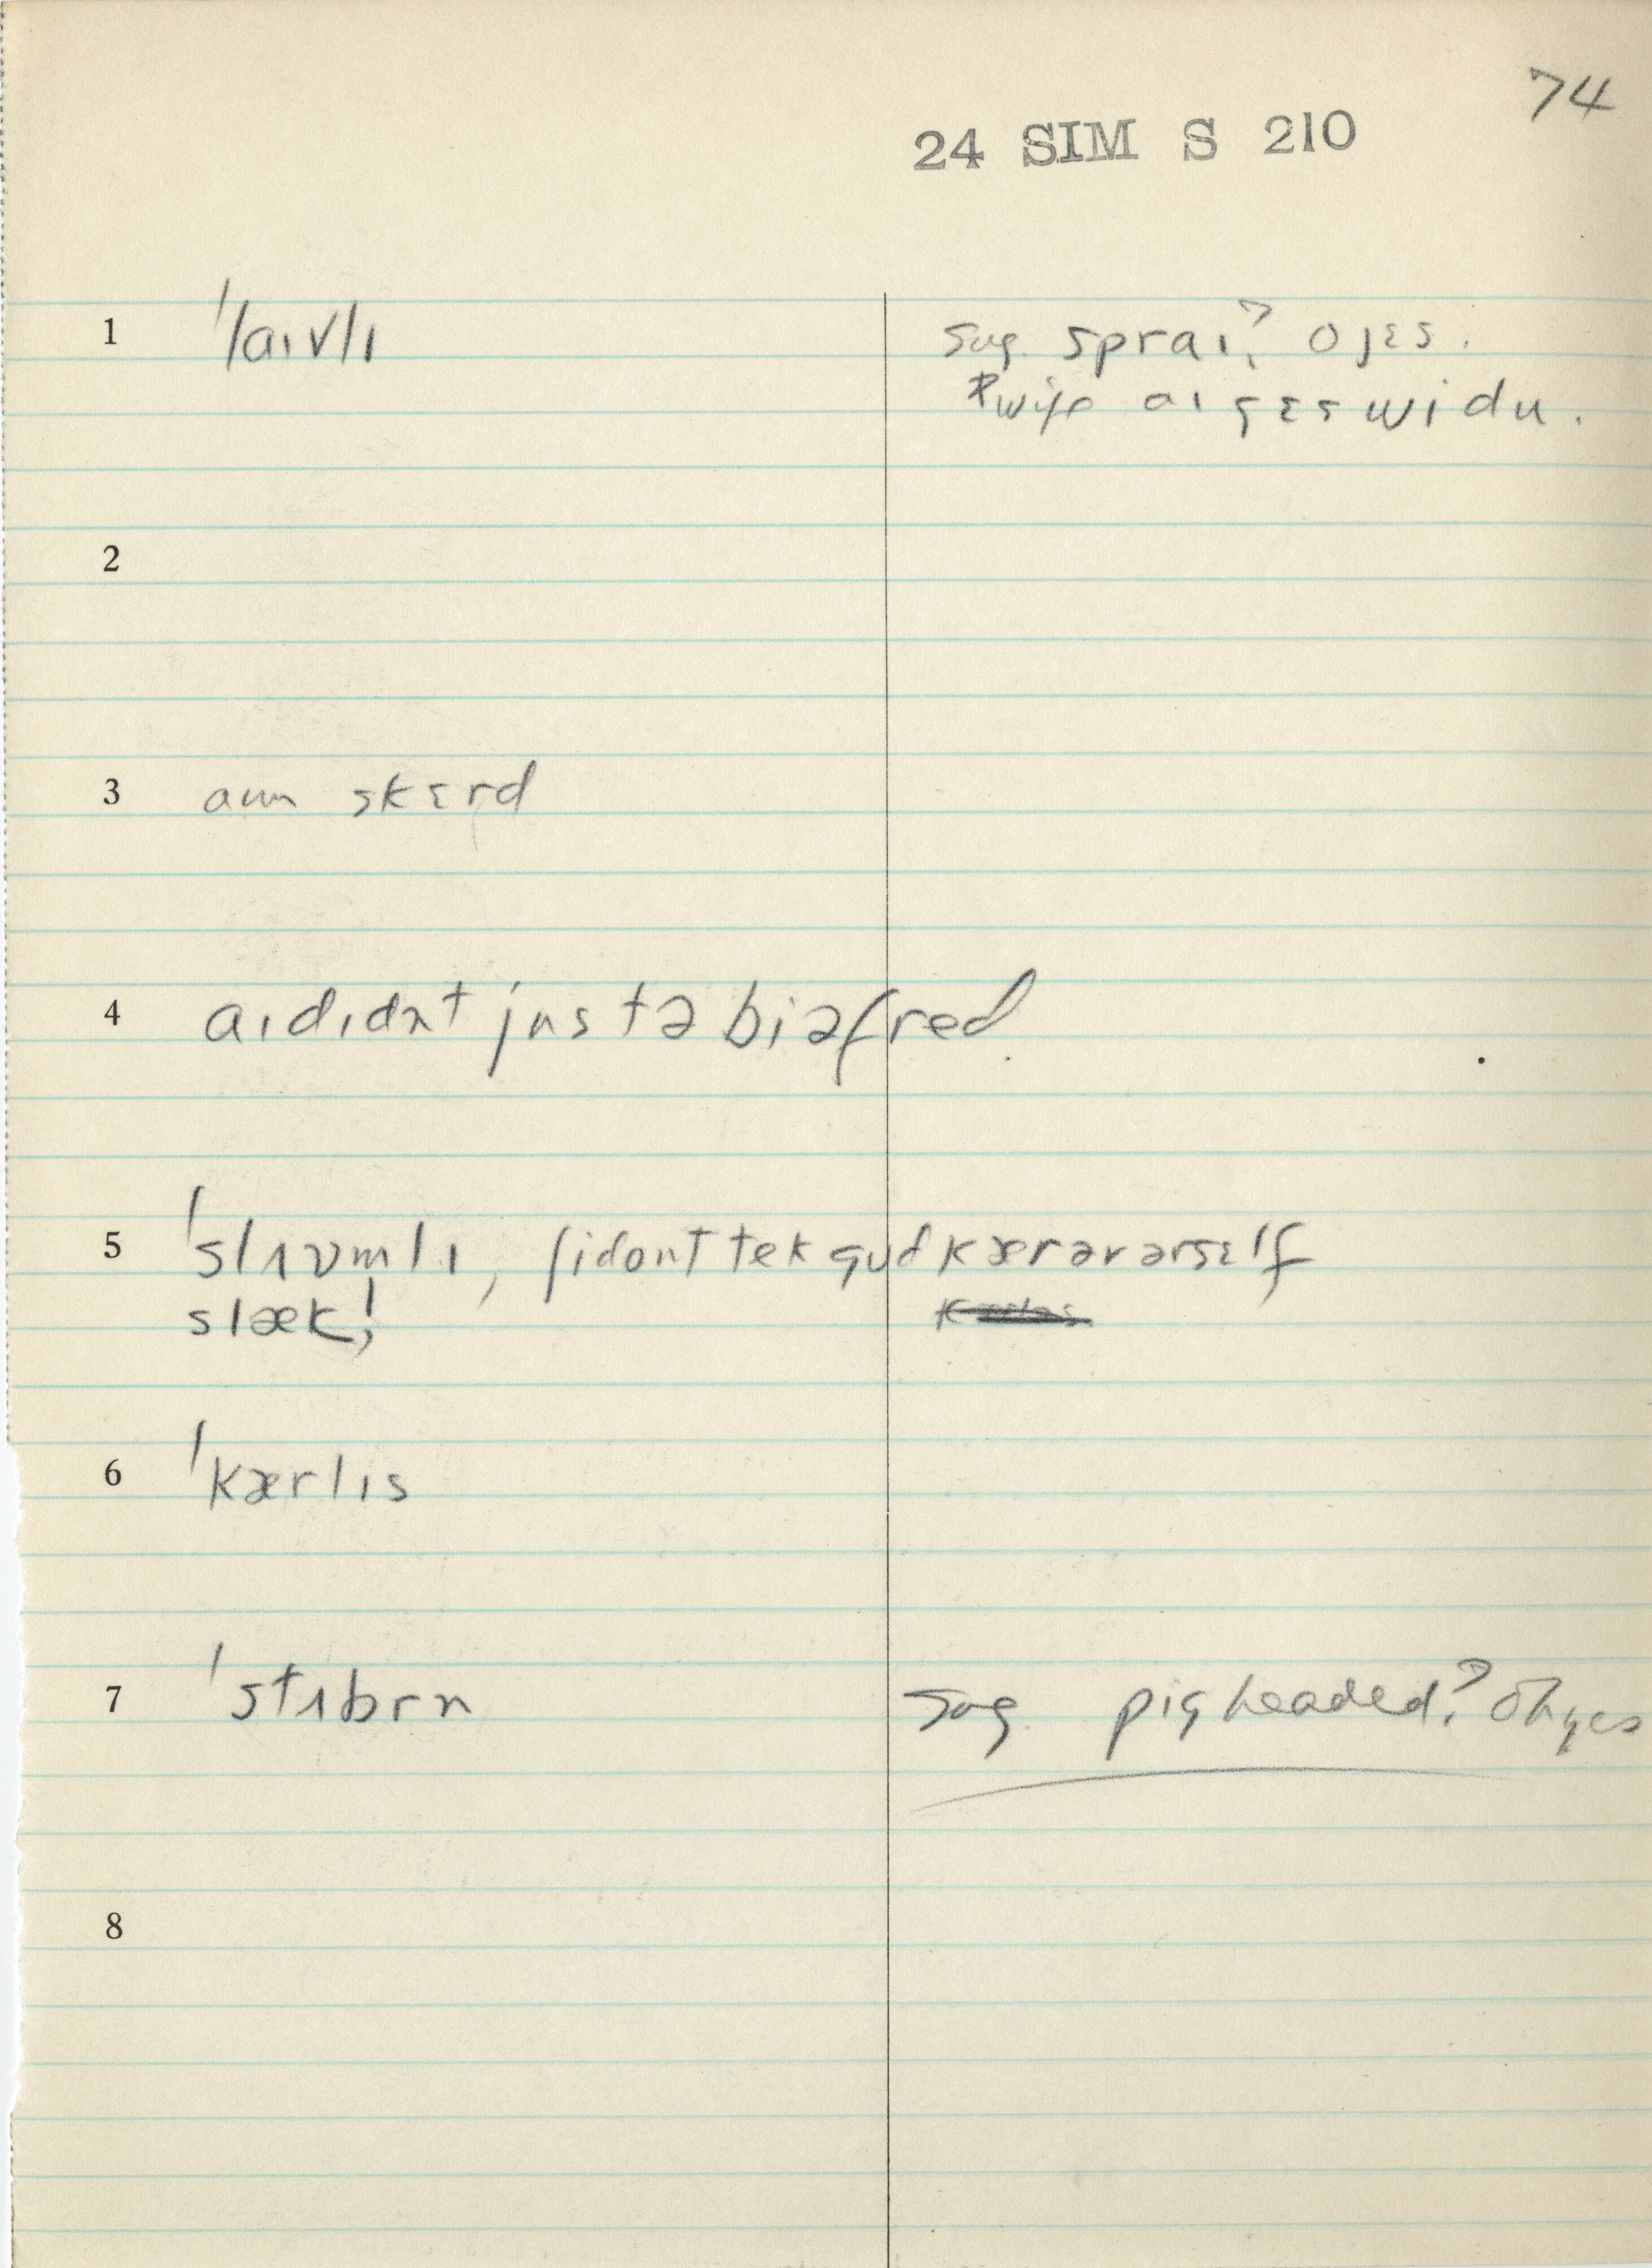 74
24 SIM S 210
1 ˈlaɪvlɪ
sug. spraɪ? o jɛs.
wife aɪ gɛs wi du.
2
3 aɪm skɛrd
4 aɪdɪdn̩t justəbiəfred.
5 ˈslʌvnlɪ, ʃidonttek gʊd kærəvərsɛlf
slæk!
6 ˈkærlɪs
7 ˈstʌbrn
sug. pigheaded? Oh yes
8